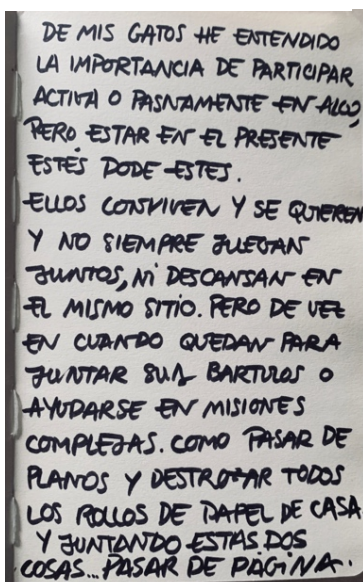 DE MIS GATOS HE ENTENDIDO
LA IMPORTANCIA DE PARTICIPAR
ACTIVA O PASIVAMENTE EN ALGO,
PERO ESTAR EN EL PRESENTE
ESTÉS DODE ESTES.
ELLOS CONVIVEN Y SE QUIEREN
Y NO SIEMPRE JUEGAN
JUNTOS, NI DESCANSAN EN
EL MISMO SITIO. PERO DE VEZ
EN CUANDO QUEDAN PARA
JUNTAR SUS BARTULOS O
AYUDARSE EN MISIONES
COMPLEJAS. COMO PASAR DE
PLANOS Y DESTROZAR TODOS
LOS ROLLOS DE PAPEL DE CASA
Y JUNTANDO ESTAS DOS
COSAS... PASAR DE PAGINA.